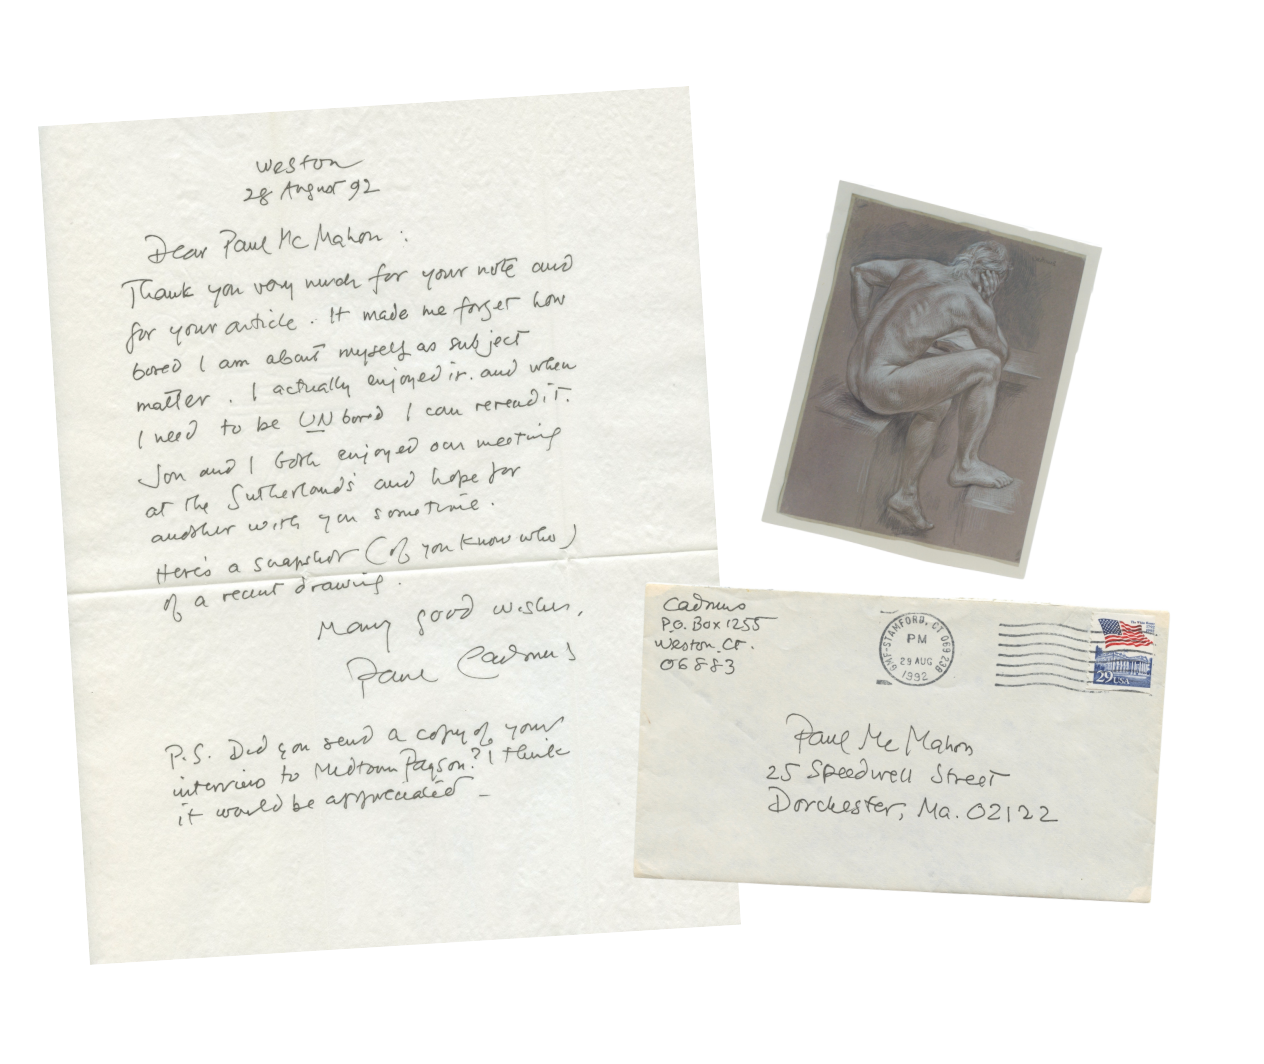 Weston
28 August 92
Dear Paul Mc Mahon :
Thank you very much for your note and
for your article. It made me forget how
bored I am about myself as subject
matter. I actually enjoyed it. and when
I need to be UN bored I can reread it.
Jon and I both enjoyed our meeting
at the Sutherlands and hope for
another with you sometime.
Here's a snapshot (of you know who)
of a recent drawing.
Many good wishes,
Paul Cadmus
P.S. Did you send a copy of your
interview to Midtown Payson? I think
it would be appreciated –
Cadmus
P.O. Box 1255
Weston, Ct.
06883
GMF-STAMFORD, CT 069 238
PM
29 AUG
1992
29 USA
Paul Mc Mahon
25 Speedwell Street
Dorchester, Ma. 02122